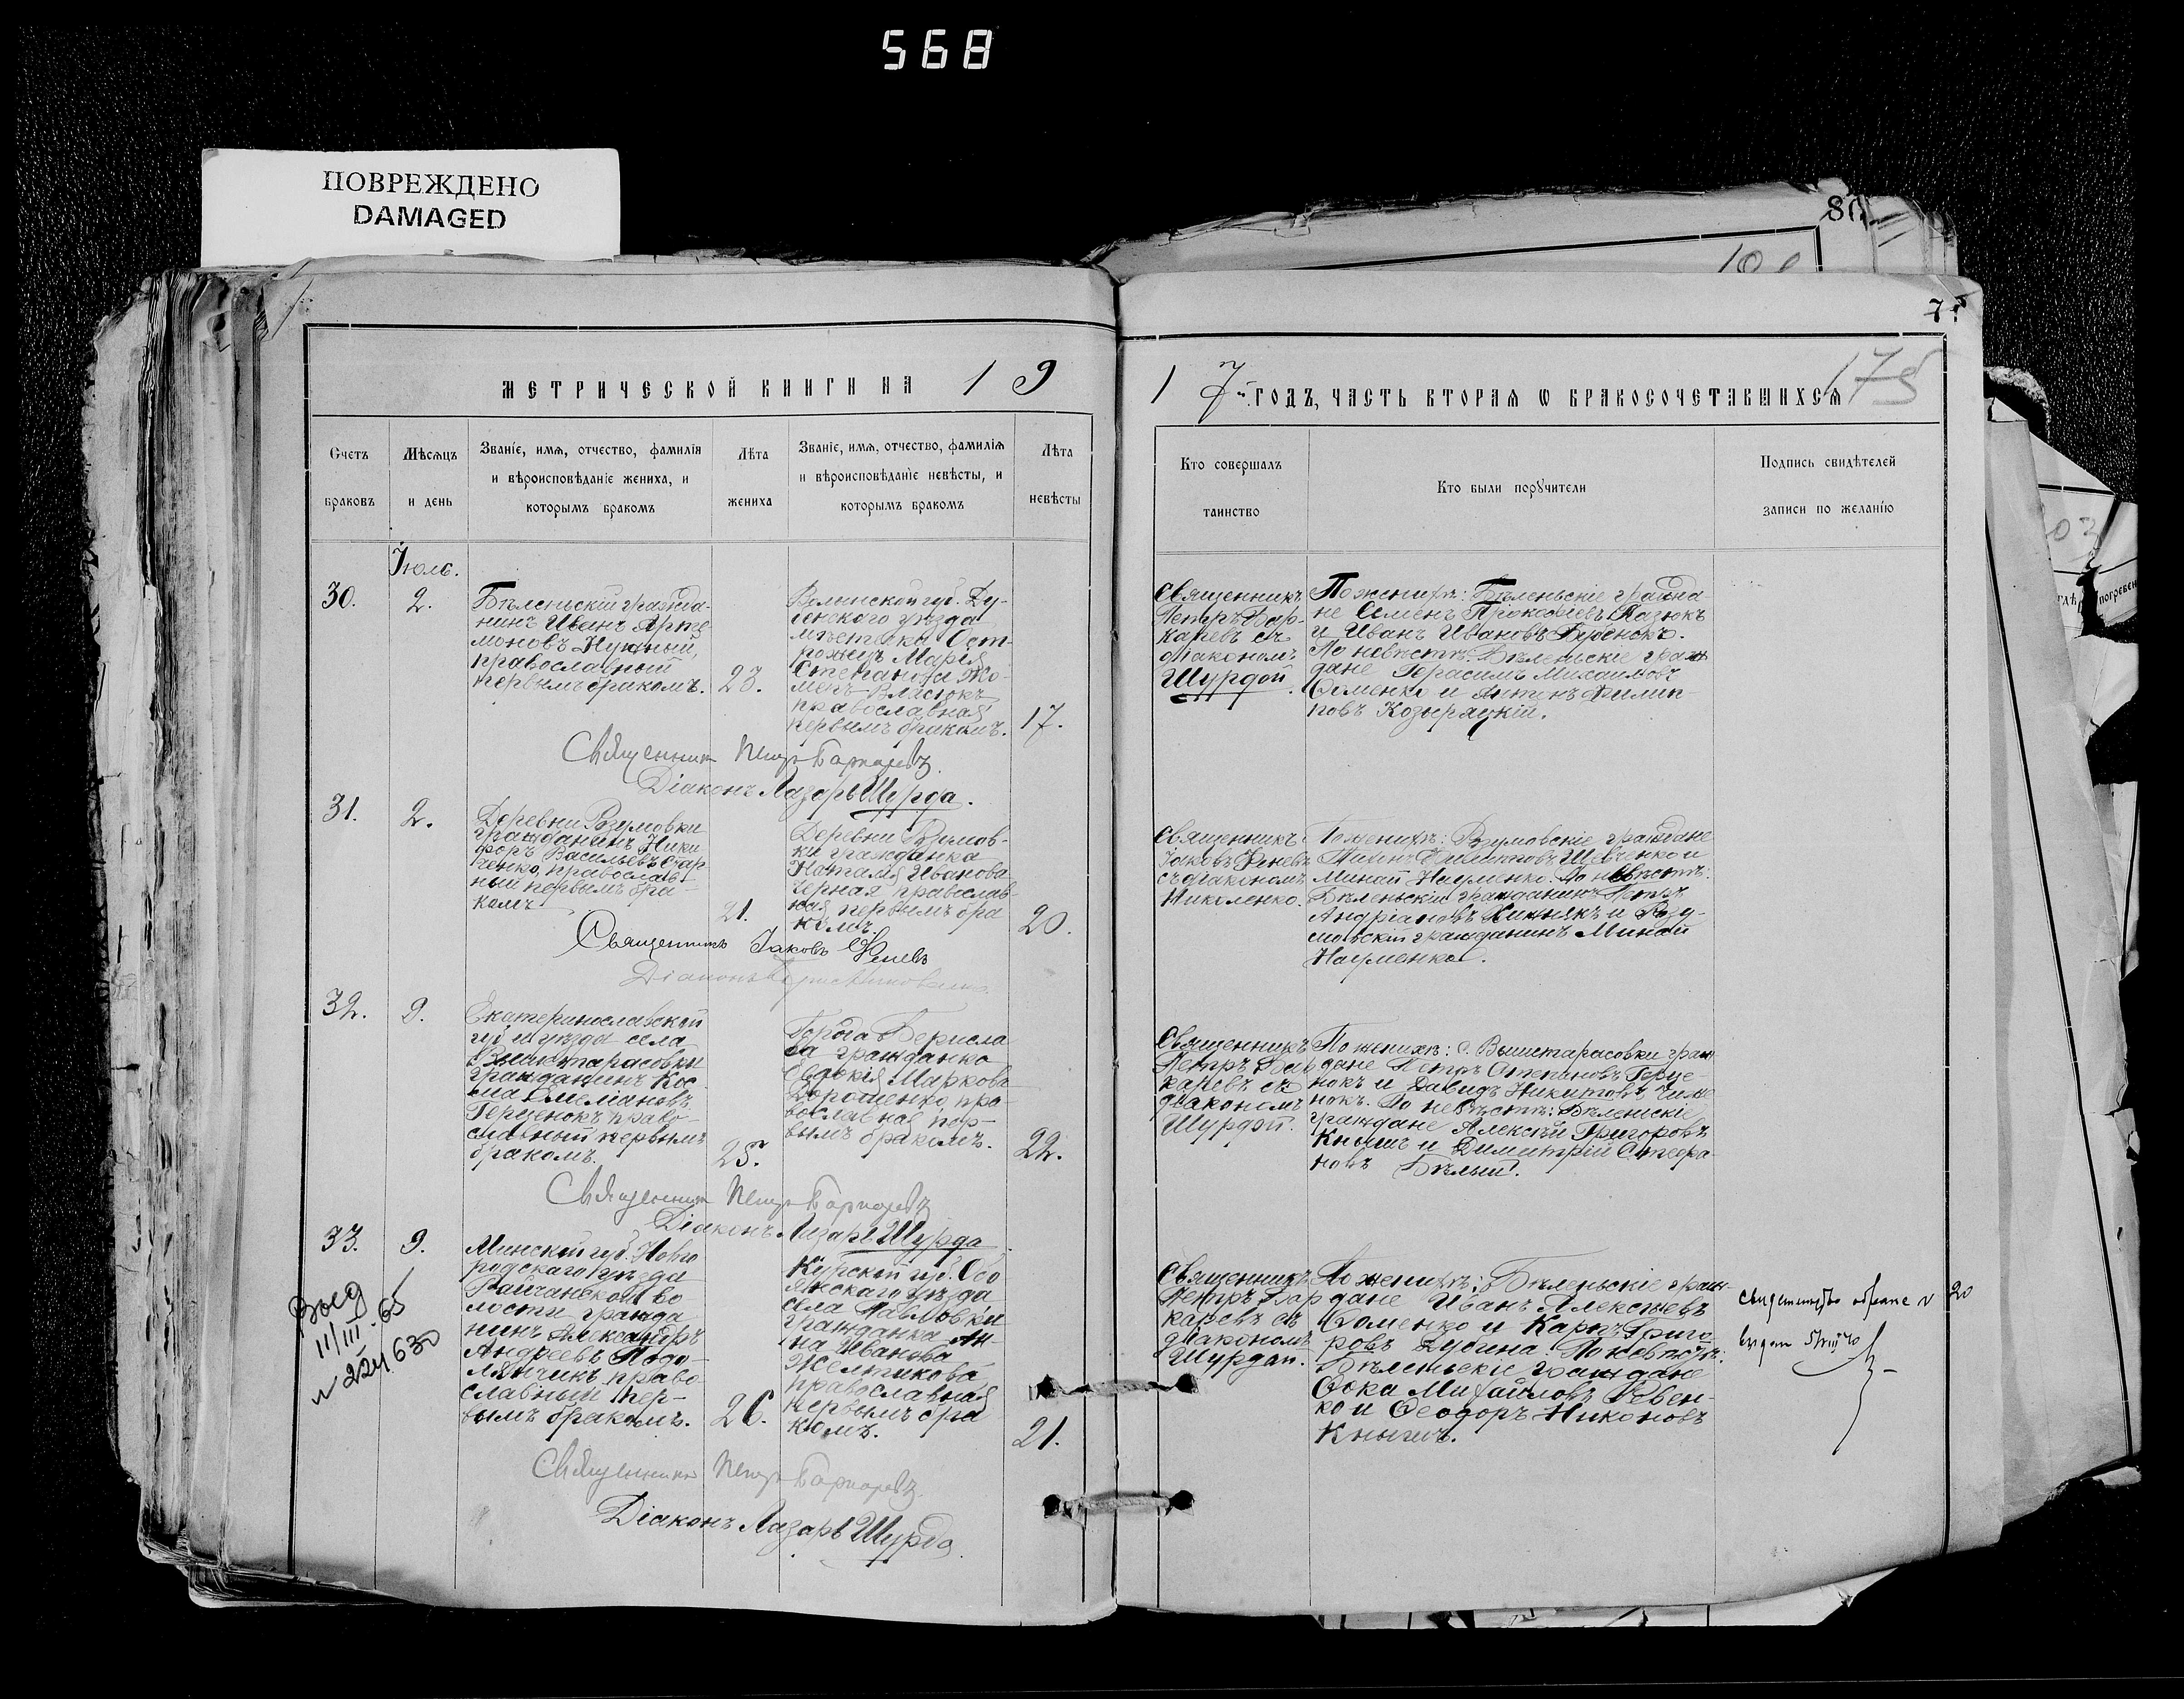 568
ПОВРЕЖДЕНО
DAMAGED
80
7
МЕТРИЧЕСКОЙ КНИГИ НА 19
17 й ГОДЪ, ЧАСТЬ ВТОРАЯ Ѡ БРАКОСОЧЕТАВШИХСЯ
175
Счетъ браковъ
Мѣсяцъ и день
Званіе, имя, отчество, фамилія
и вѣроисповѣданіе жениха, и
которымъ бракомъ
Лѣта жениха
Званіе, имя, отчество, фамилія
и вѣроисповѣданіе невѣсты, и
которымъ бракомъ
Лѣта невѣсты
Кто совершалъ
таинство
Кто были поручители
Подпись свидѣтелей
записи по желанію
Іюль.
30.
2.
Бѣленьскій гражда-
нинъ Иванъ Арте
моновъ
православный
первымъ бракомъ.
23.
Волынской губ. Ду-
бенского уѣзда
мѣстечка Ост-
рожецъ Марія
Степанова
Власюкъ
православная
первымъ бракомъ.
17.
Священникъ
Петръ Бар-
каревъ съ
діакономъ
Шурдой.
По женихѣ: Бѣленьскіе гражда-
не Семенъ Прокофіевъ Казюкъ
и Иванъ Ивановъ
По невѣстѣ: Бѣленьскіе граж
дане Герасимъ Михайловъ
Фоменко и Антонъ Филип
повъ Козыряцкій.
Священникъ Петръ Баркаревъ
Діаконъ Лазарь Шурда.
31.
2.
Деревни Розумовки
гражданинъ Ники
форъ Васильевъ
православ
ный первымъ бра-
комъ
21.
Деревни Розумов-
ки гражданка
Наталія Иванова
Черная православ-
ная первымъ бра
комъ.
20.
Священникъ
Іаковъ
съ діакономъ
Николенко.
По женихѣ: Розумовскіе граждане
Шевченко и
Минай Науменко. По невѣстѣ:
Бѣленьскій гражданинъ Петръ
Андріановъ и Розу-
мовскій гражданинъ Минай
Науменко.
Священникъ Іаковъ
Діаконъ
32.
9.
Екатеринославской
губ и уѣзда села
Вышетарасовки
гражданинъ Кос
ма Емеліановъ
право
славный первымъ
бракомъ.
25.
Города Берисла
ва гражданка
Евдокія Маркова
Дорошенко, пра
вославная пер-
вымъ бракомъ.
22.
Священникъ
Петръ Бар
каревъ съ
діакономъ
Шурдой.
По женихѣ: с. Вышетарасовки граж
дане Петръ Степановъ
и Давидъ Никитовъ
По невѣстѣ: Бѣленьскіе
граждане Алексѣй Григоровъ
Кнышъ и Димитрій Стефа
новъ Бѣлый.
Священникъ Петръ Баркаревъ
Діаконъ Лазарь Шурда
33.
9.
Минской губ. Новго
родскаго уѣзда
Райчанской во
лости гражда
нинъ Александръ
Андреевъ Подо-
лянчикъ право
славный пер-
вымъ бракомъ.
26.
Курской губ. Обо
янскаго уѣзда
села Павловки
гражданка Ан-
на Иванова
Желтикова
православная
первымъ бра
комъ.
21.
Священникъ
Петръ Бар
каревъ съ
діакономъ
Шурдой.
По женихѣ: Бѣленьскіе граж-
дане Иванъ Алексѣевъ
Фоменко и Карпъ Григо
ровъ Дубина. По невѣстѣ:
Бѣленьскіе граждане
Фока Михайловъ Ревен-
ко и Феодоръ Никоновъ
Кнышъ.
20
11/III.65
Священникъ Петръ Баркаревъ
Діаконъ Лазарь Шурда